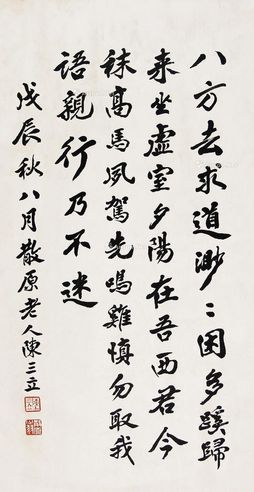 八方去求道渺〻困多蹊歸
来坐虚室夕陽在吾西君今
秣高馬夙駕先鳴雞慎勿取我
語親行乃不迷
戊辰秋八月散原老人陳三立